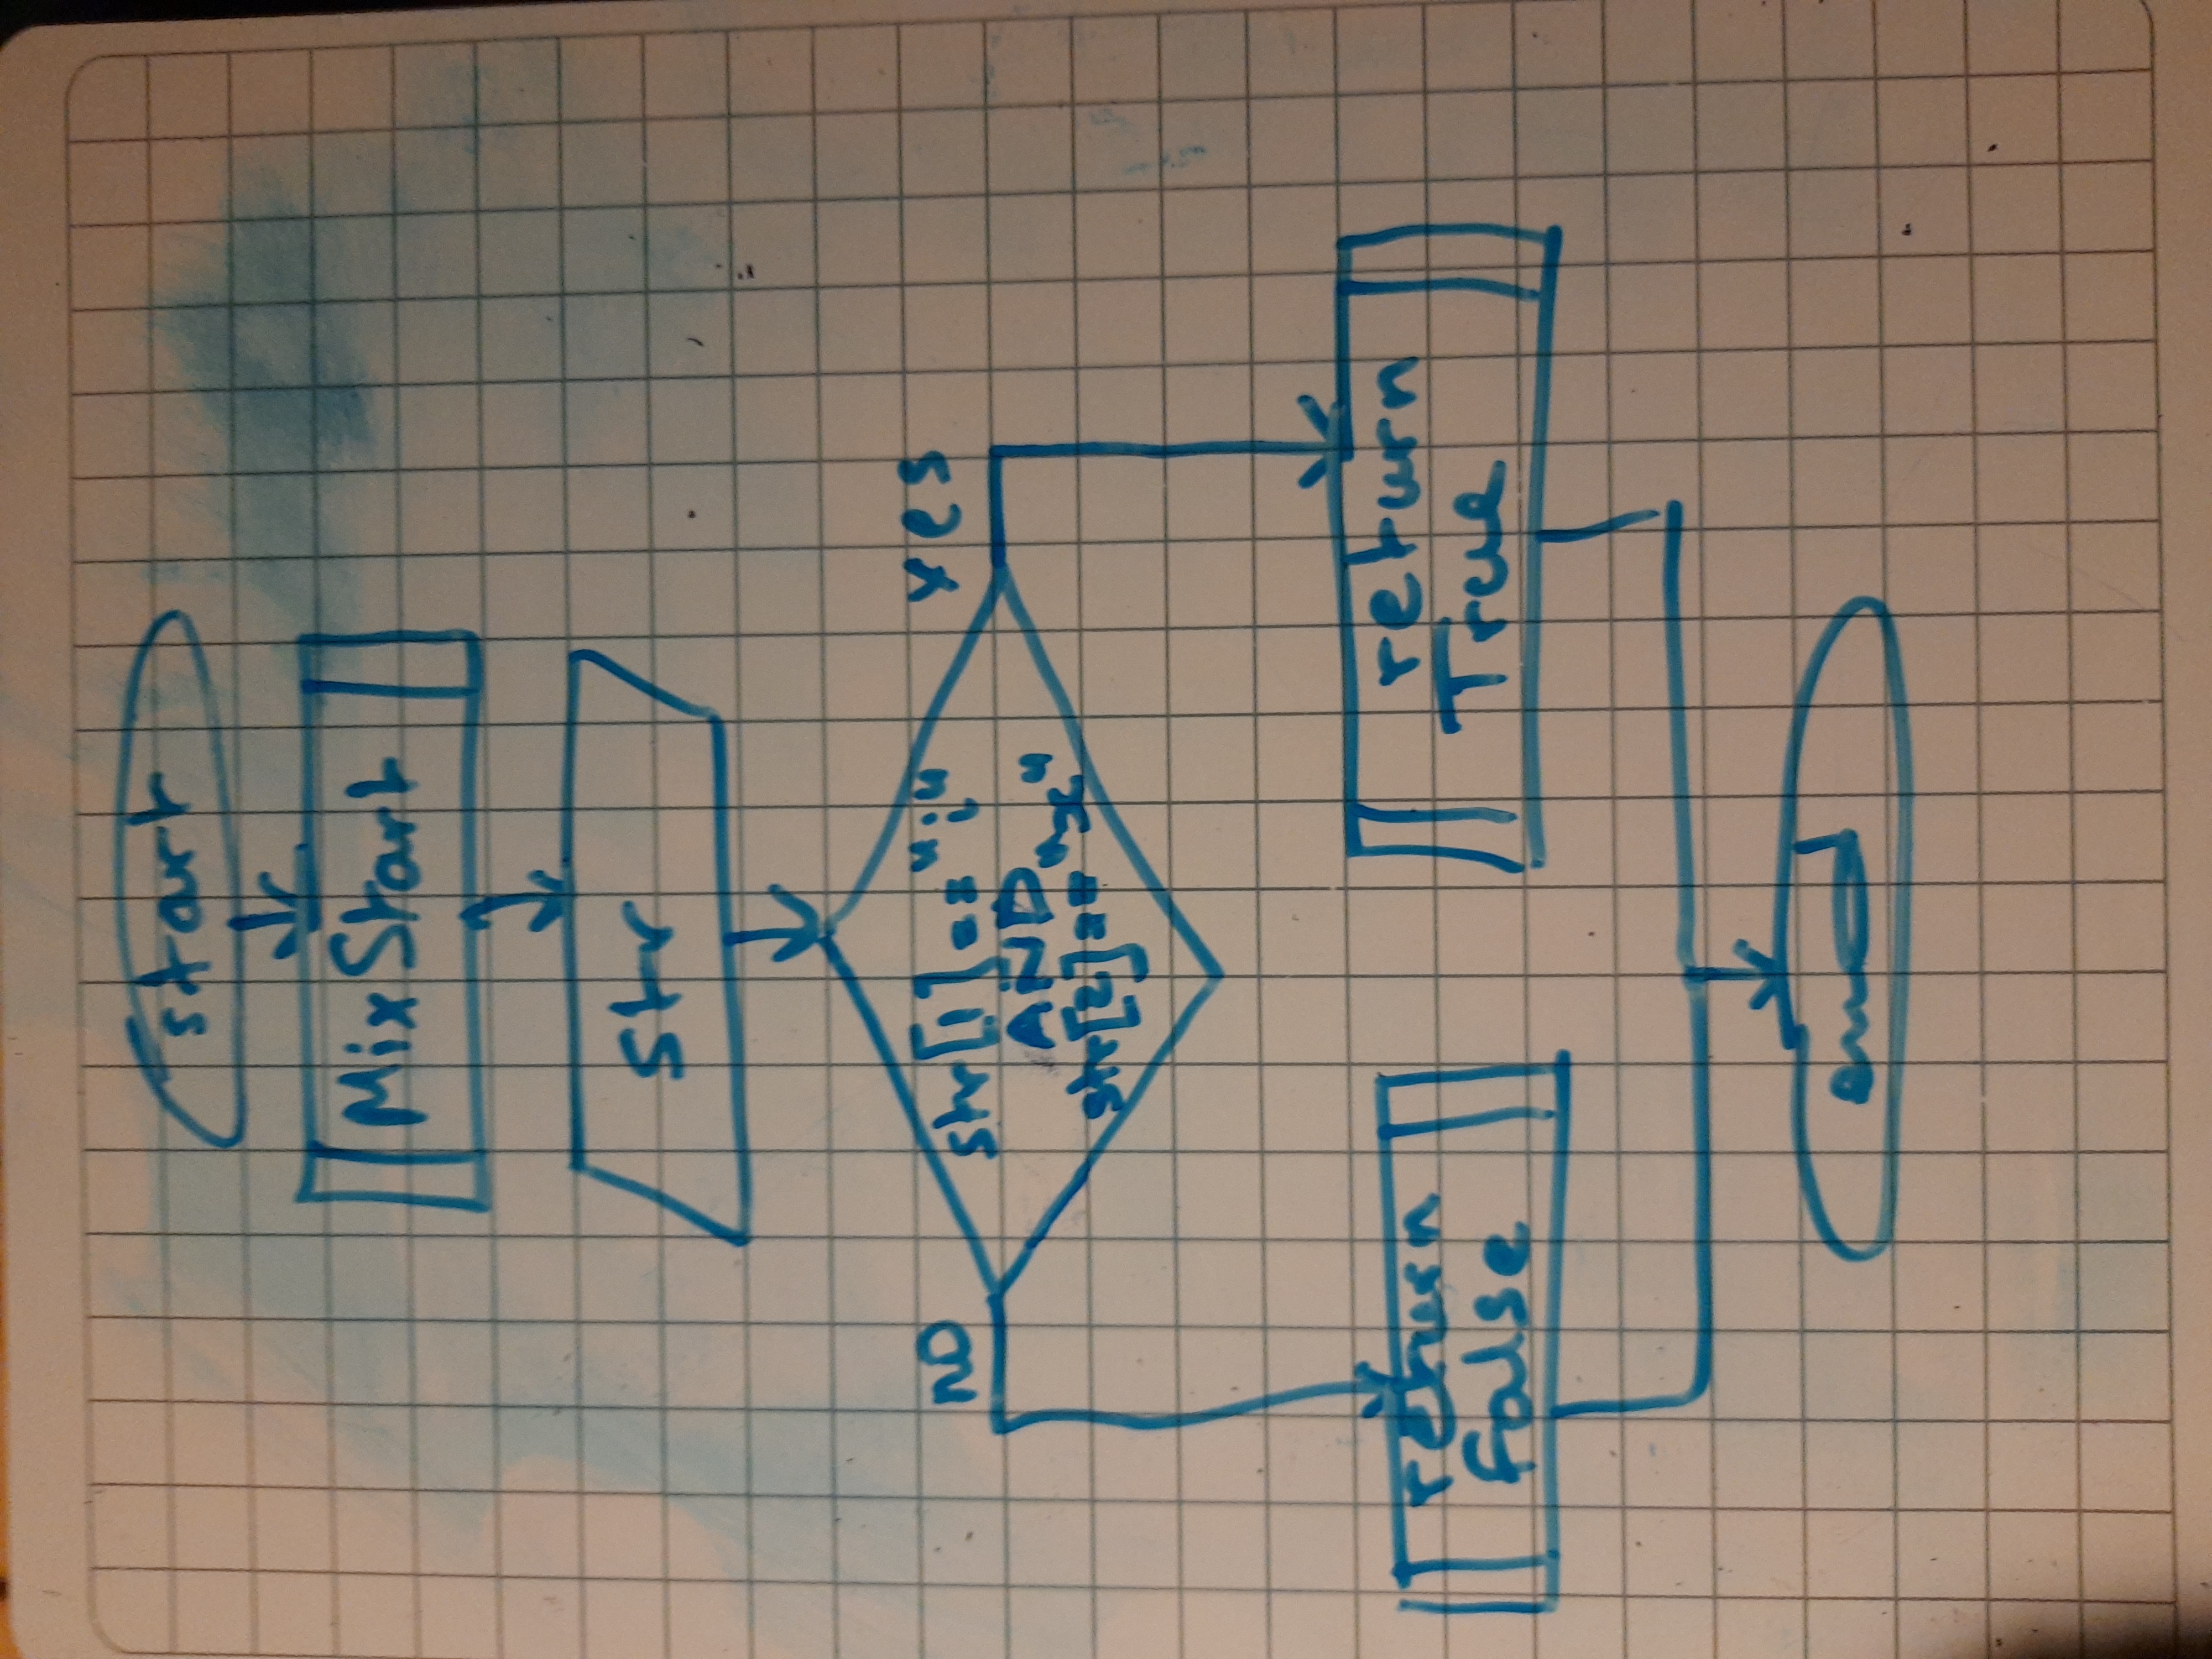 start
MixStart
str
no
yes
str[1]=="i"
AND
str[2]=="x"
return
False
return
True
end